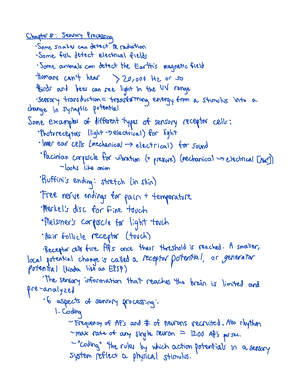 Chapter 8: Sensory Processing
· Some snakes can detect IR radiation
· Some fish detect electrical fields
· Some animals can detect the Earth's magnetic field
· Humans can't hear > 20,000 Hz or so
· Birds and bees can see light in the UV range
· Sensory transduction = transforming energy from a stimulus into a
change in synaptic potential
Some examples of different types of sensory receptor cells:
· Photoreceptors (light → electrical) for light
· Inner ear cells (mechanical → electrical) for sound
· Pacinian corpuscle for vibration (+ pressure) (mechanical → electrical
– looks like onion
· Ruffini's ending: stretch (in skin)
· Free nerve endings for pain + temperature
· Merkel's disc for fine touch
· Meissner's corpuscle for light touch
· Hair follicle receptor (touch)
· Receptor cells fire APs once their threshold is reached. A smaller,
local potential change is called a receptor potential, or generator
potential (kinda like an EPSP)
· The sensory information that reaches the brain is limited and
pre-analyzed
· 6 aspects of sensory processing:
1. Coding
– Frequency of APs and # of neurons recruited. Also rhythm
– max rate of any single neuron = 1200 APs per sec.
– "coding" the rules by which action potentials in a sensory
system reflect a physical stimulus.